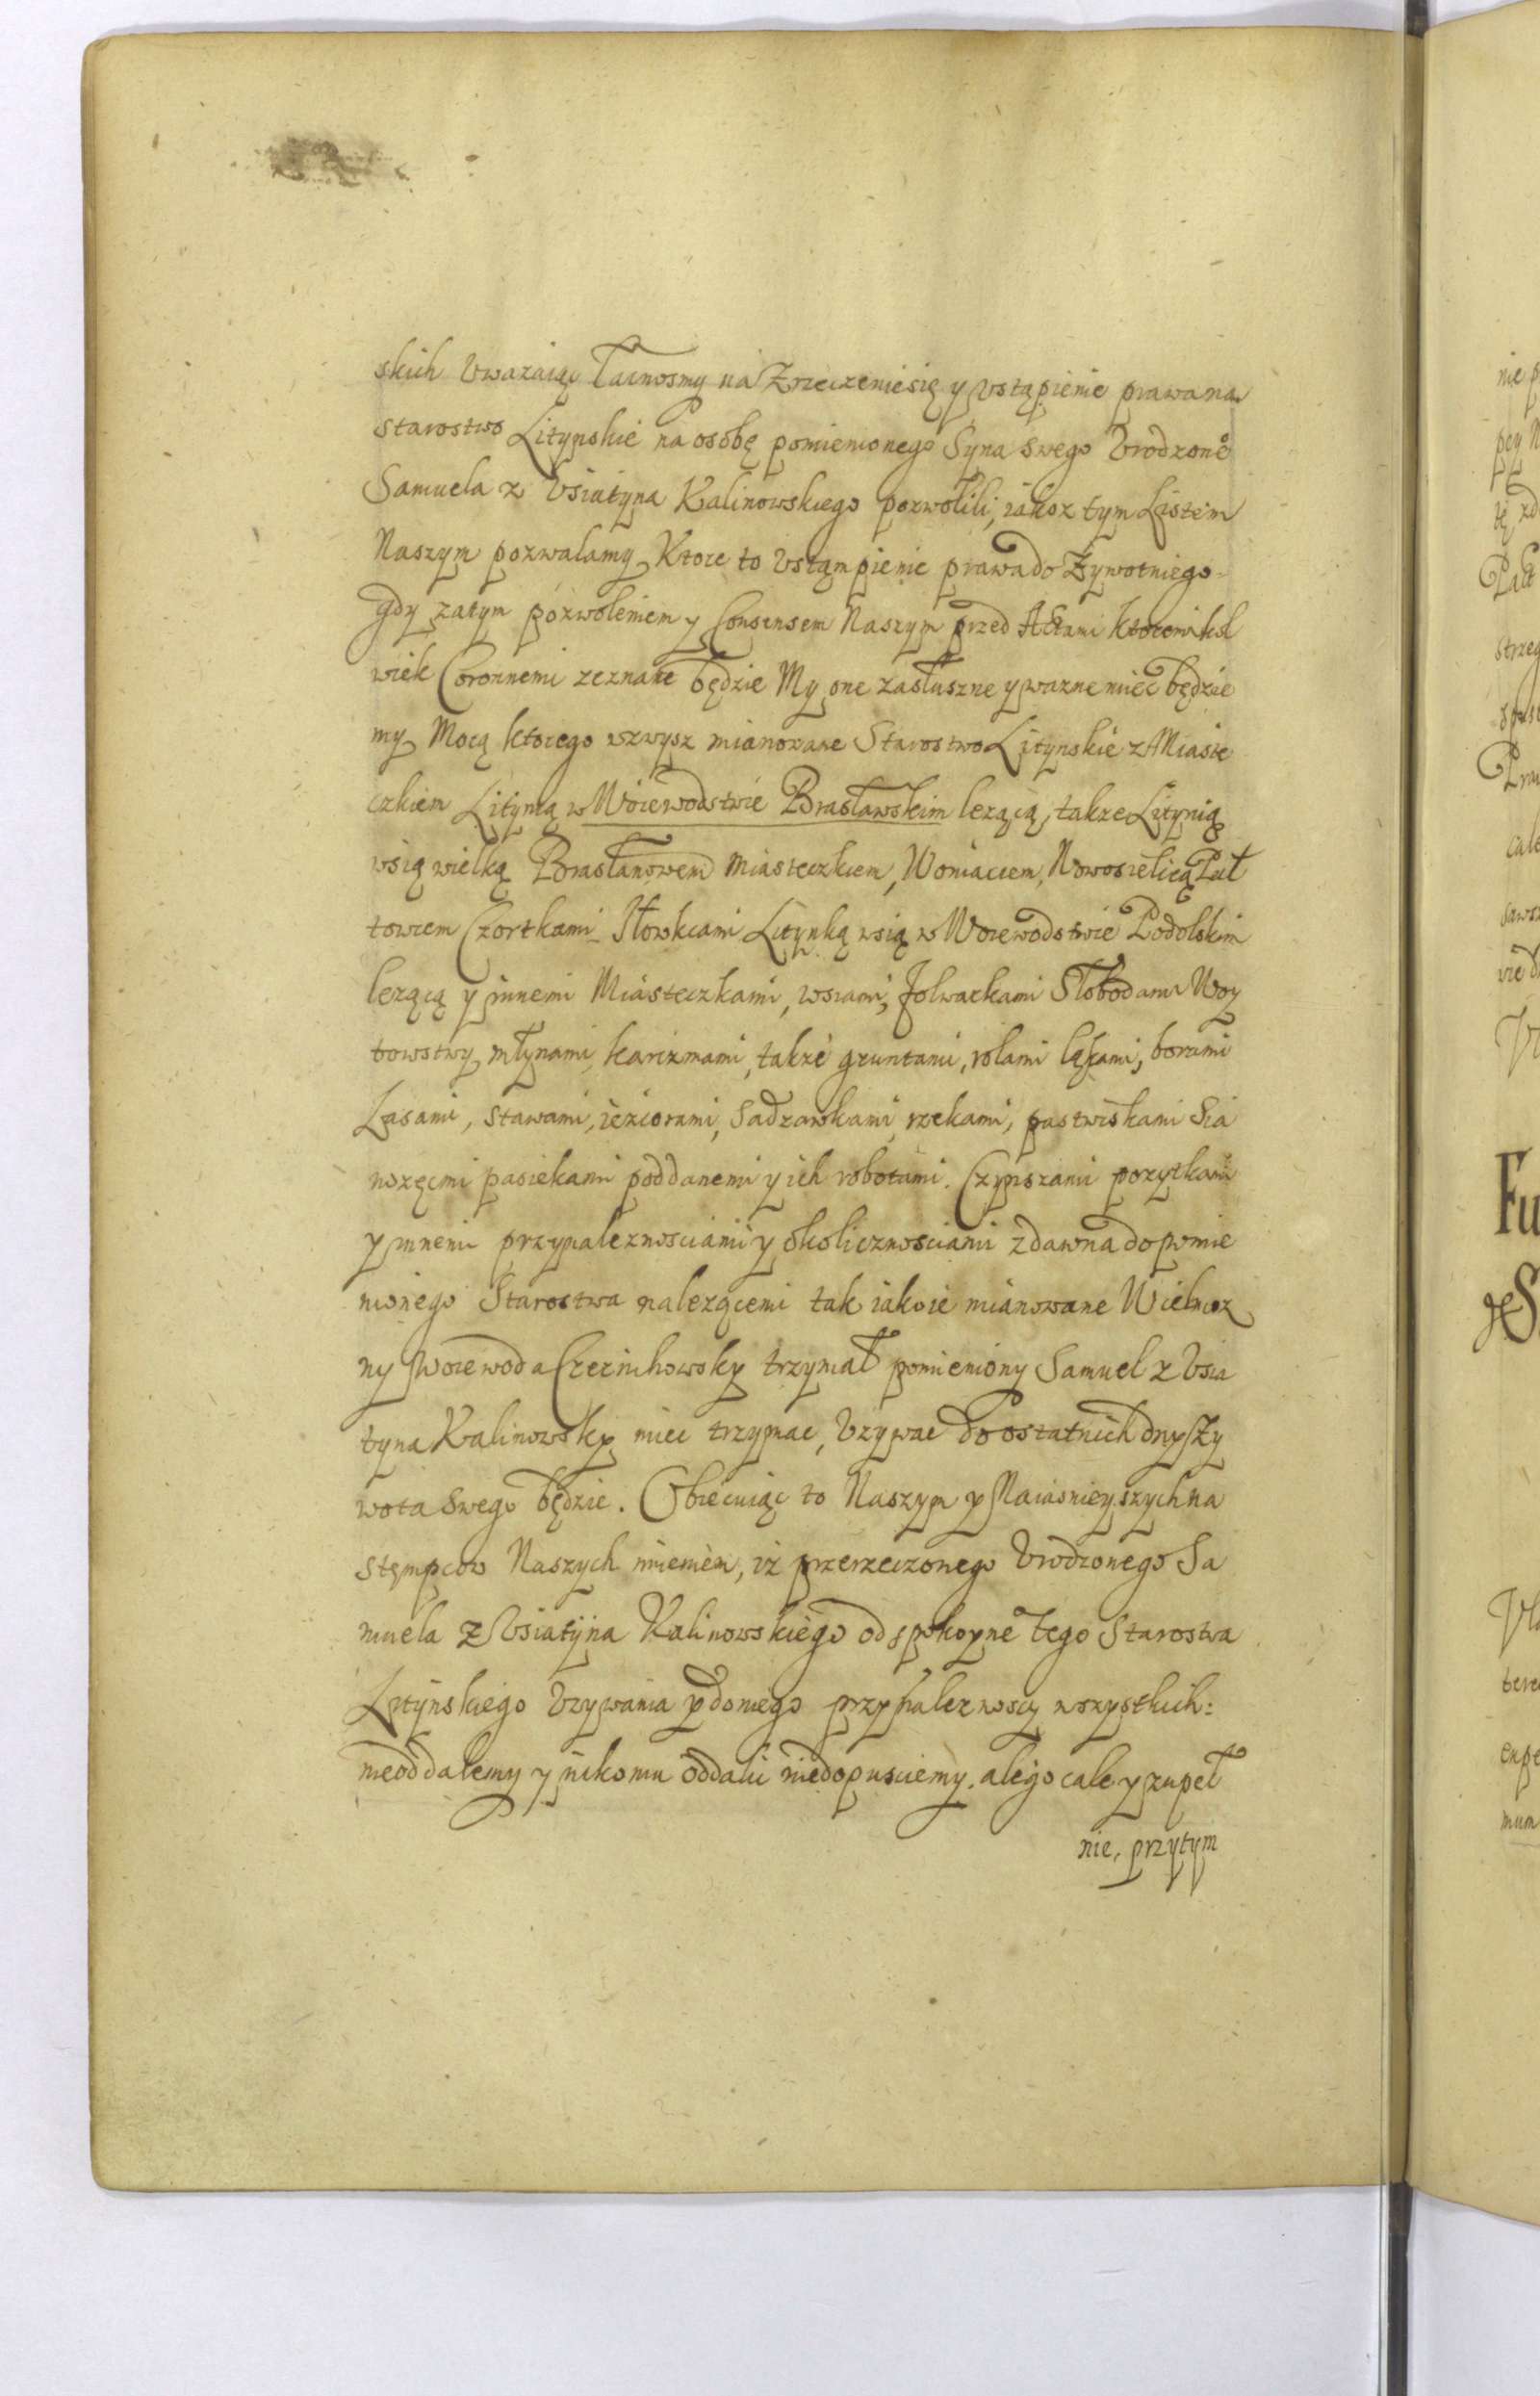 skich Uwazaiąc Łacnosmy na Zrzeczenie się y Vstąpienie prawa na
Starostwo Litynskie na osobę pomienionego Syna swego Vrodzone⁰
Samuela z Vsiatyna Kalinowskiego pozwolili, iakoz tym Listem
Naszym pozwalamy, Ktore to Vstąmpienie prawa do Zywotniego
gdy zatym pozwoleniem y Consensem Naszym przed Actami ktoremikol
wiek Coronnemi zeznane będzie My one za słuszne y wazne miec będzie
my, Mocą ktorego wzwysz mianowane Starostwo Litynskie z Miaste
czkiem Lityną w Woiewodstwie Brasławskim lezącą, takze Litynią
wsią wielką Brasłanowem Miasteczkiem, Woniaczem, Nowosielicą Puł
towcem Czortkami Jłowkcami Litynką wsią w Woiewodstwie Podolskim
lezącą y innemi Miasteczkami, wsiami, folwarkami Słobodami Woy
towstwy, młynami, karczmami, takze gruntami, rolami łąkami, borami
Lasami, stawami, ieziorami, Sadzawkami, rzekami, pastwiskami Sia
nozęcmi pasiekami poddanemi y ich robotami. Czynszami pozytkami
y innemi przynaleznosciami y okolicznosciami zdawna do pomie
nionego Starostwa nalezącemi tak iako ie mianowane Wielmoz
ny Woiewoda Czernihowsky trzymał pomieniony Samuel z Vsia
tyna Kalinowsky miec trzymac, Vzywac do ostatnich dny Zy
wota Swego będzie. Obiecuiąc to Naszym y Naiasnieyszych na
stęmpcow Naszych imieniem, iz przerzeczonego Vrodzonego Sa
muela z Vsiatyna Kalinowskiego od spokoyne⁰ tego Starostwa
Litynskiego Vzywania y do niego przynaleznoscy wszystkich:
nieoddalemy y nikomu oddalic niedopusciemy. ale go cale y zupeł
nie, przytym